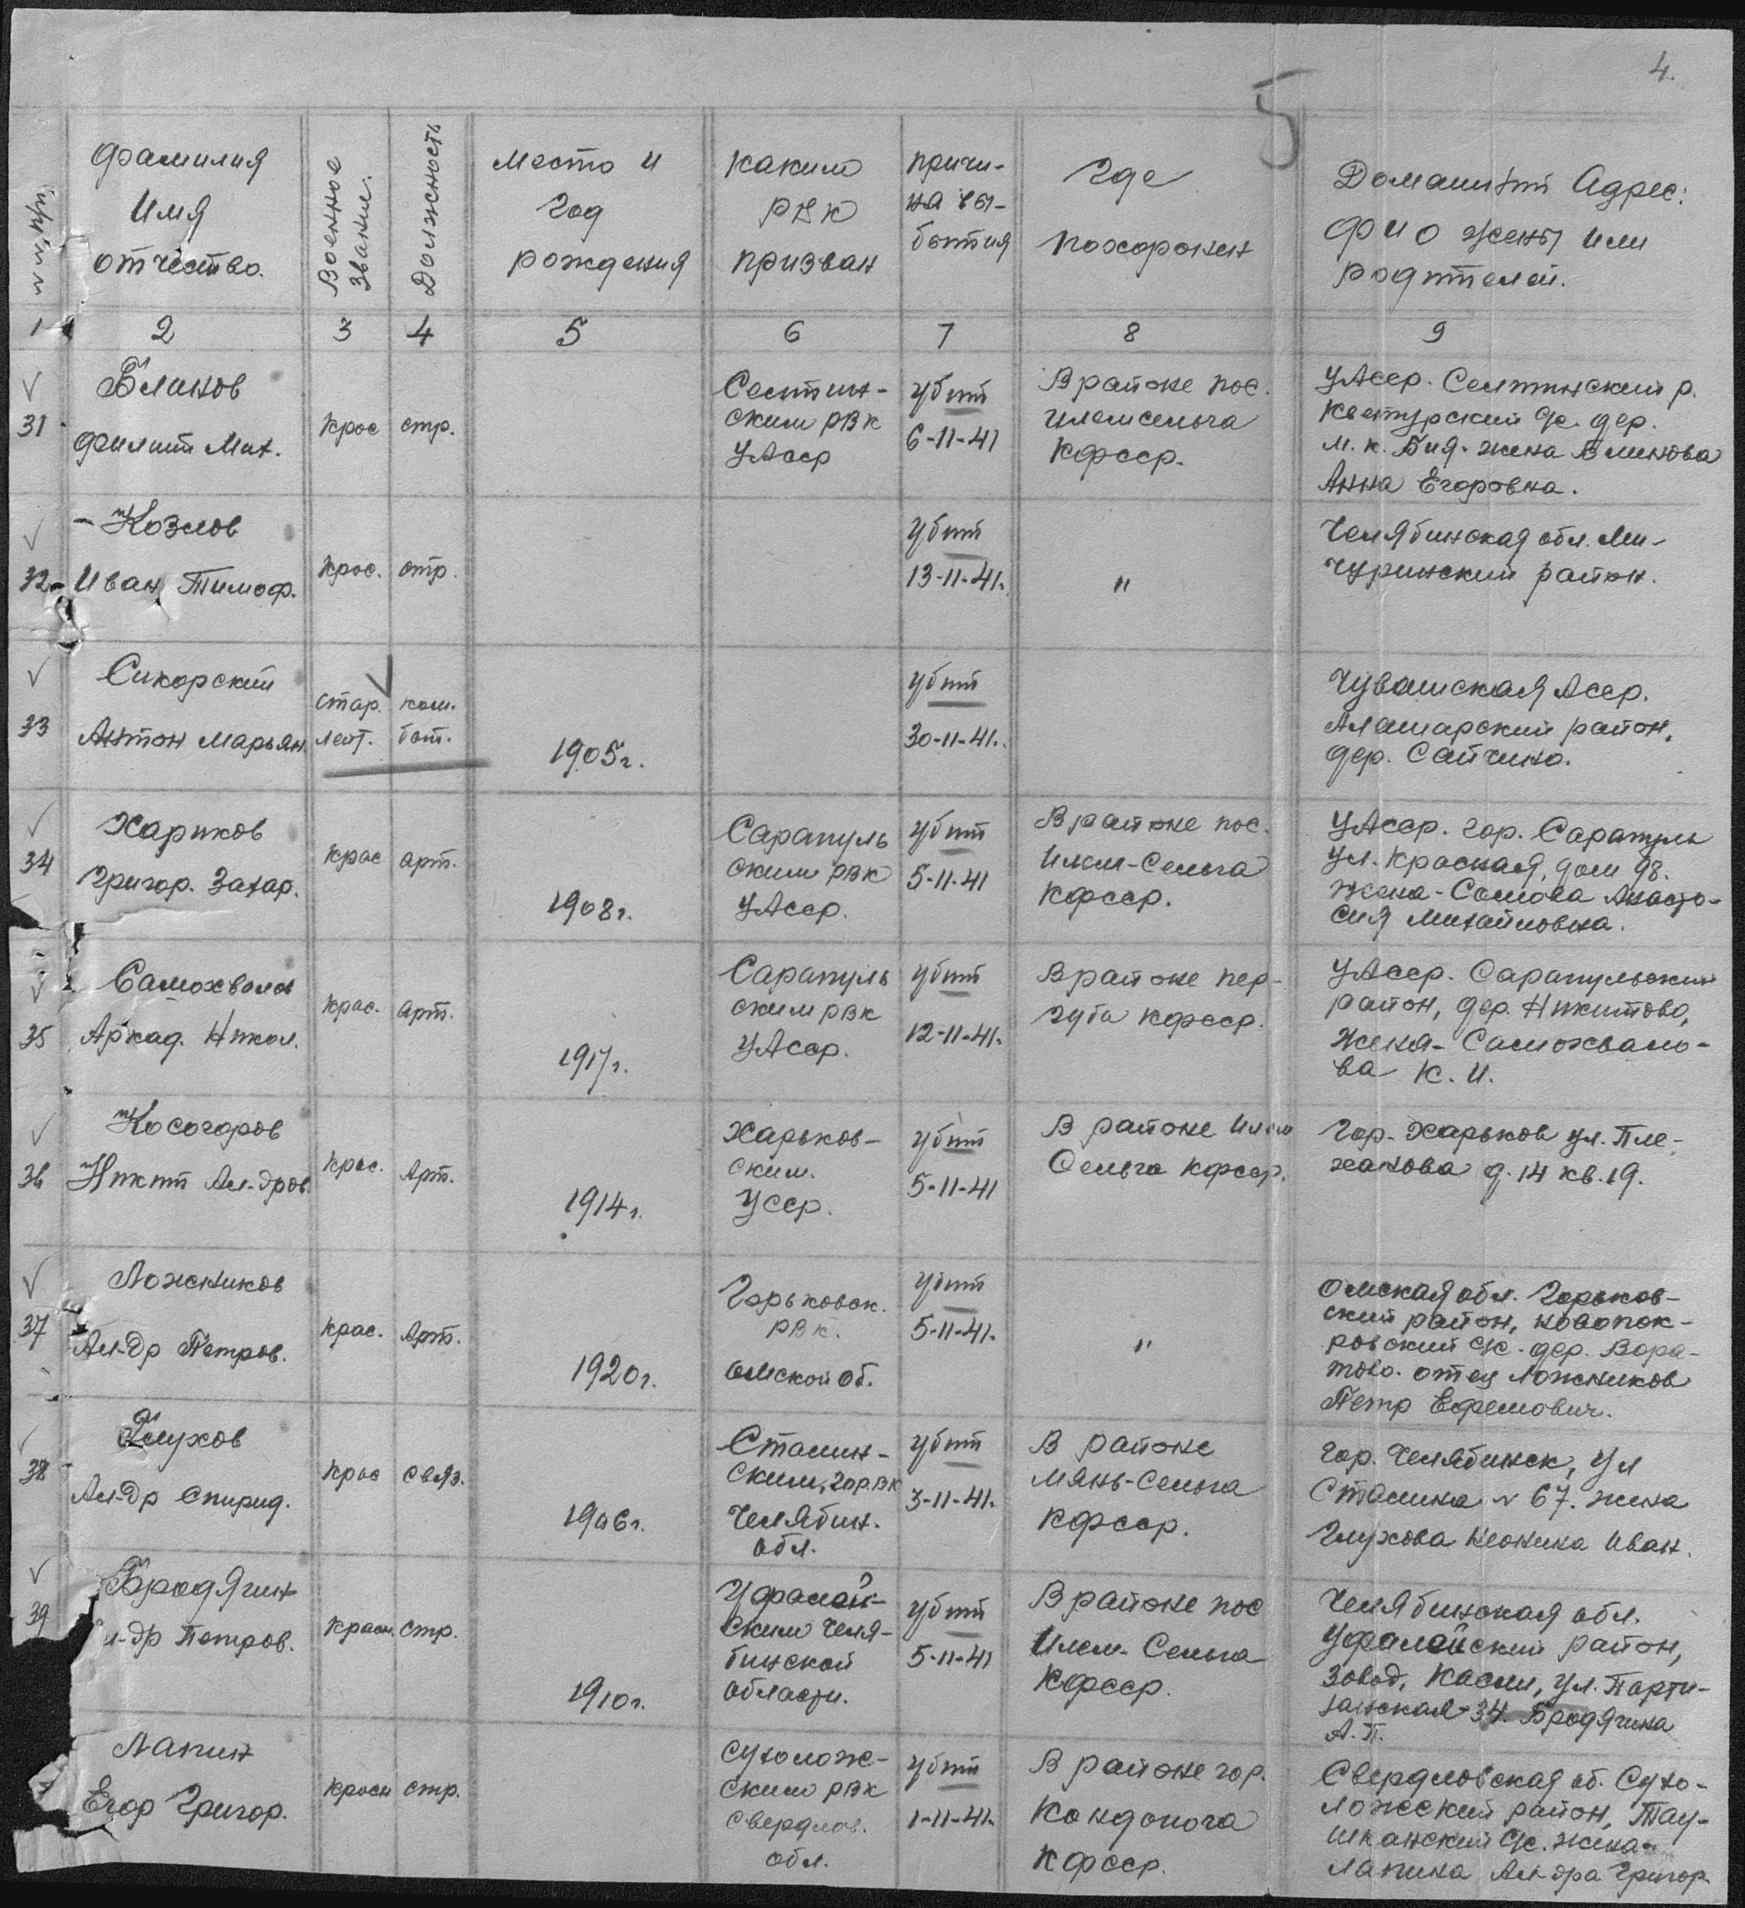 4.
5
№№ п/п
Фамилия
Имя
отчество.
Военное
звание.
Должность
Место и
год
рождения
Каким
РВК
призван
Причи-
на вы-
бытия
Где
похоронен
Домашний Адрес:
ФИО жены или
родителей.
1 2 3 4 5 6 7 8 9
31
Блинов
Филипп Мих.
Крас стр.
Селтин-
ским РВК
УАсср
убит
6-11-41
В районе пос.
Илемсельга
Кфсср.
УАсср. Селтинский р.
с/с. дер.
М. К. Бия. жена Блинова
Анна Егоровна.
32
Козлов
Иван Тимоф.
Крас. стр.
убит
13-11-41.
"
Челябинская обл. Ми-
чуринский район.
33
Сикорский
Антон Марьян.
стар. ком.
лейт. бат.
1905г.
убит
30-11-41.
Чувашская Асср.
Алатарский район,
дер. Сайчино.
34
Хариков
Григор. Захар.
Крас арт.
1908г.
Сарапуль
ским РВК
УАсср.
убит
5-11-41
В районе пос.
Илем-Сельга
Кфсср.
УАсср. гор. Сарапуль
ул. Красная, дом 98.
Жена - Сомова Анаста-
сия Михайловна.
35
Самохвалов
Аркад. Никол.
Крас. арт.
1917г.
Сарапуль
ским РВК
УАсср.
убит
12-11-41.
В районе Пер-
губа Кфсср.
УАсср. Сарапульский
район, дер. Никитово,
Жена - Самохвало-
ва К. И.
36
Косогоров
Никит Ал-дров.
Крас. Арт.
1914г.
Харьков-
ским.
Усср.
убит
5-11-41
В районе Илем
Сельга Кфсср.
Гор. Харьков ул. Пле-
ханова д. 14 кв. 19.
37
Ложников
Ал-др Петров.
Крас. Арт.
1920г.
Горьковск.
РВК.
Омской об.
убит
5-11-41.
"
Омская обл. Горьков-
ский район, Новопок-
ровский с/с. дер. Вора-
тово. отец Ложников
Петр Ефремович.
38
Глухов
Ал-др Спирид.
Крас связ.
1906г.
Сталин-
ским, гор.вк
Челябин.
обл.
убит
3-11-41.
В районе
Мянь-Сельга
Кфсср.
гор. Челябинск, ул
Сталина № 67. жена
Глухова Иван.
39
Бродягин
л-др Петров.
Красн. стр.
1910г.
Уфалей-
ским Челя-
бинской
области.
убит
5-11-41
В районе пос
Илем-Сельга
Кфсср.
Челябинская обл.
Уфалейский район,
завод, Касли, ул. Парти-
занская - 34. Бродягина
А. П.
Лапин
Егор Григор.
Красн стр.
Сухолож-
ским РВК
Свердлов.
обл.
убит
1-11-41.
В районе гор.
Кондопога
Кфсср.
Свердловская об. Сухо-
ложский район, Тау-
шканский с/с. жена -
Лапина Ал-дра Григор.